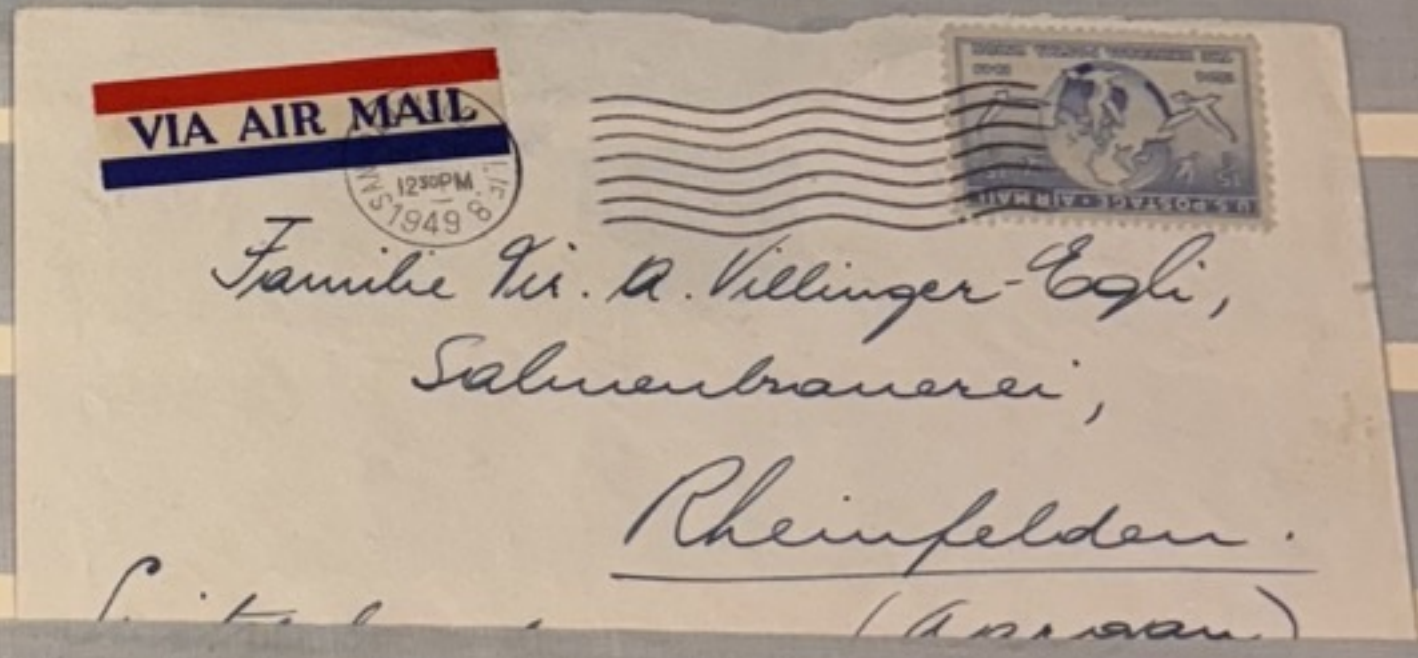 VIA AIR MAIL
12 30 PM
1949
U.S. POSTAGE · AIR MAIL
15¢
Familie Dir. A. Villinger-Egli,
Salmenbrauerei,
Rheinfelden.
Switzerland (Aargau)